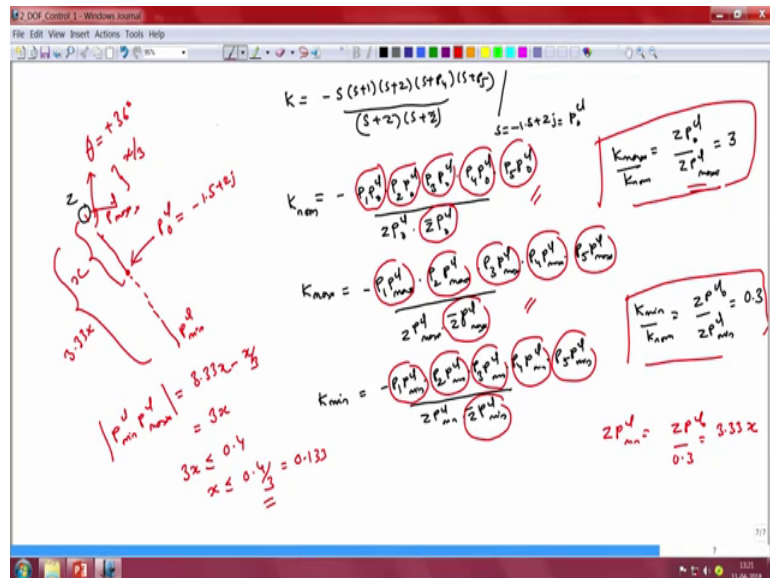 2_DOF_Control_1 - Windows Journal
File Edit View Insert Actions Tools Help
96%
θ = +36°
x/3
z
p^d_max
p^d_0 = -1.5+2j
x
3.33x
p^d_min
|p^d_min p^d_max| = 3.33x - x/3
= 3x
3x ≤ 0.4
x ≤ 0.4/3 = 0.133
K = - s(s+1)(s+2)(s+p4)(s+p5) / (s+z)(s+z̄) | s=-1.5+2j = p^d_0
K_nom = - p1p^d_0 . p2p^d_0 . p3p^d_0 . p4p^d_0 . p5p^d_0 / zp^d_0 . z̄p^d_0
K_max = - p1p^d_max . p2p^d_max . p3p^d_max . p4p^d_max . p5p^d_max / zp^d_max . z̄p^d_max
K_min = - p1p^d_min . p2p^d_min . p3p^d_min . p4p^d_min . p5p^d_min / zp^d_min . z̄p^d_min
K_max / K_nom = zp^d_0 / zp^d_max = 3
K_min / K_nom = zp^d_0 / zp^d_min = 0.3
zp^d_min = zp^d_0 / 0.3 = 3.33x
7/7
7
13:21
11-04-2018